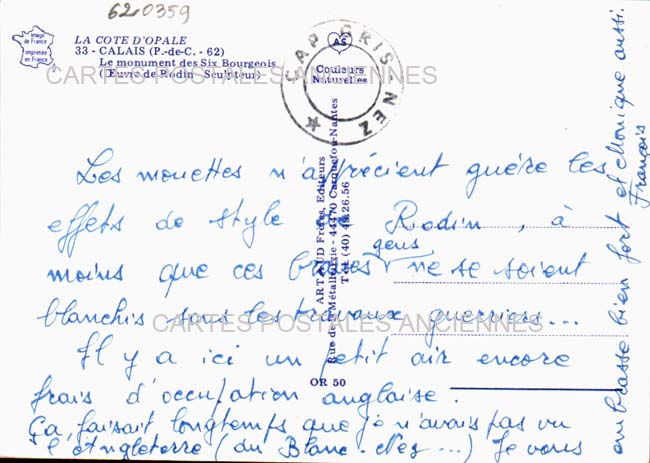 620359
Image de France
Imprimée en France
LA COTE D'OPALE
33 - CALAIS (P.-de-C. - 62)
Le monument des Six Bourgeois
(Œuvre de Rodin - Sculpteur)
CARTES POSTALES ANCIENNES
CAP GRIS NEZ
AS
Couleurs
Naturelles
ARTAUD Frères, Editeurs
Rue de la Métallurgie - 44470 Carquefou-Nantes
Tél. (40) 49.26.56
OR 50
Les mouettes n'apprécient guère les
effets de style de Rodin, à
moins que ces braves gens ne se soient
blanchis sous les travaux guerriers...
CARTES POSTALES ANCIENNES
Il y a ici un petit air encore
frais d'occupation anglaise.
Ça faisait longtemps que je n'avais pas vu
l'Angleterre (du Blanc-Nez...) Je vous
embrasse bien fort et Monique aussi.
François